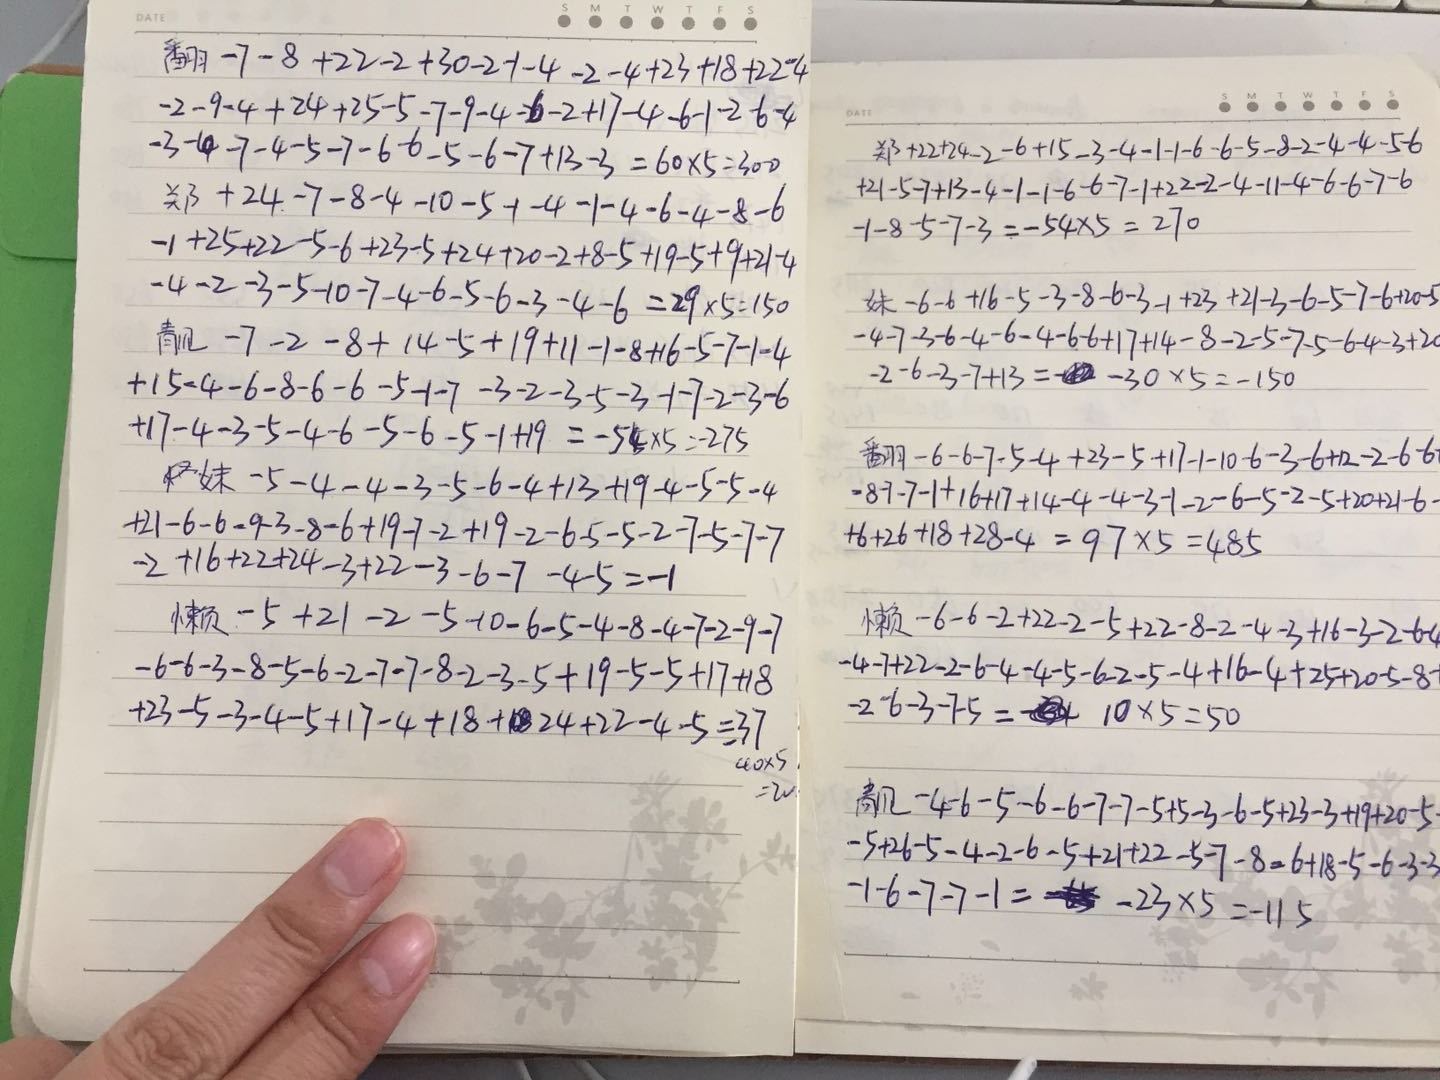 DATE
S M T W T F S
翻 -7-8+22-2+30-2-1-4-2-4+23+18+22-4
-2-9-4+24+25-5-7-9-4-6-2+17-4-6-1-2-6-4
-3-4-7-4-5-7-6-6-5-6-7+13-3=60×5=300
郑 +24-7-8-4-10-5-1-4-1-4-6-4-8-6
-1+25+22-5-6+23-5+24+20-2+8-5+19-5+9+21-4
-4-2-3-5-10-7-4-6-5-6-3-4-6=29×5=150
-7-2-8+14-5+19+11-1-8+16-5-7-1-4
+15-4-6-8-6-6-5-1-7-3-2-3-5-3-1-7-2-3-6
+17-4-3-5-4-6-5-6-5-1+19=-54×5=-275
妹 -5-4-4-3-5-6-4+13+19-4-5-5-4
+21-6-6-9-3-8-6+19-7-2+19-2-6-5-5-2-7-5-7-7
-2+16+22+24-3+22-3-6-7-4-5=-1
懒 -5+21-2-5-10-6-5-4-8-4-7-2-9-7
-6-6-3-8-5-6-2-7-7-8-2-3-5+19-5-5+17+18
+23-5-3-4-5+17-4+18+24+22-4-5=37
40×5
DATE
S M T W T F S
郑+22+24-2-6+15-3-4-1-1-6-6-5-8-2-4-4-5-6
+21-5-7+13-4-1-1-6-6-7-1+22-2-4-11-4-6-6-7-6
-1-8-5-7-3=-54×5=270
妹 -6-6+16-5-3-8-6-3-1+23+21-3-6-5-7-6+20-5
-4-7-3-6-4-6-4-6-6+17+14-8-2-5-7-5-6-4-3+20
-2-6-3-7+13= -30×5=-150
翻 -6-6-7-5-4+23-5+17-1-10-6-3-6+12-2-6-6
-8-7-7-1+16+17+14-4-4-3-1-2-6-5-2-5+20+21-6-
+6+26+18+28-4=97×5=485
懒 -6-6-2+22-2-5+22-8-2-4-3+16-3-2-6-4
-4-7+22-2-6-4-4-5-6-2-5-4+16-4+25+20-5-8
-2-6-3-7-5= 10×5=50
-4-6-5-6-6-7-7-5+5-3-6-5+23-3+19+20-5-
-5+26-5-4-2-6-5+21+22-5-7-8-6+18-5-6-3-3
-1-6-7-7-1= -23×5=-115